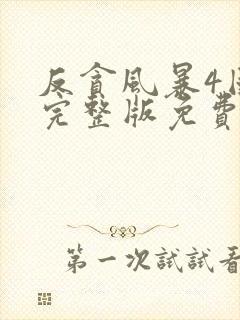 反貪風暴4
完整版免費
第一次試試看